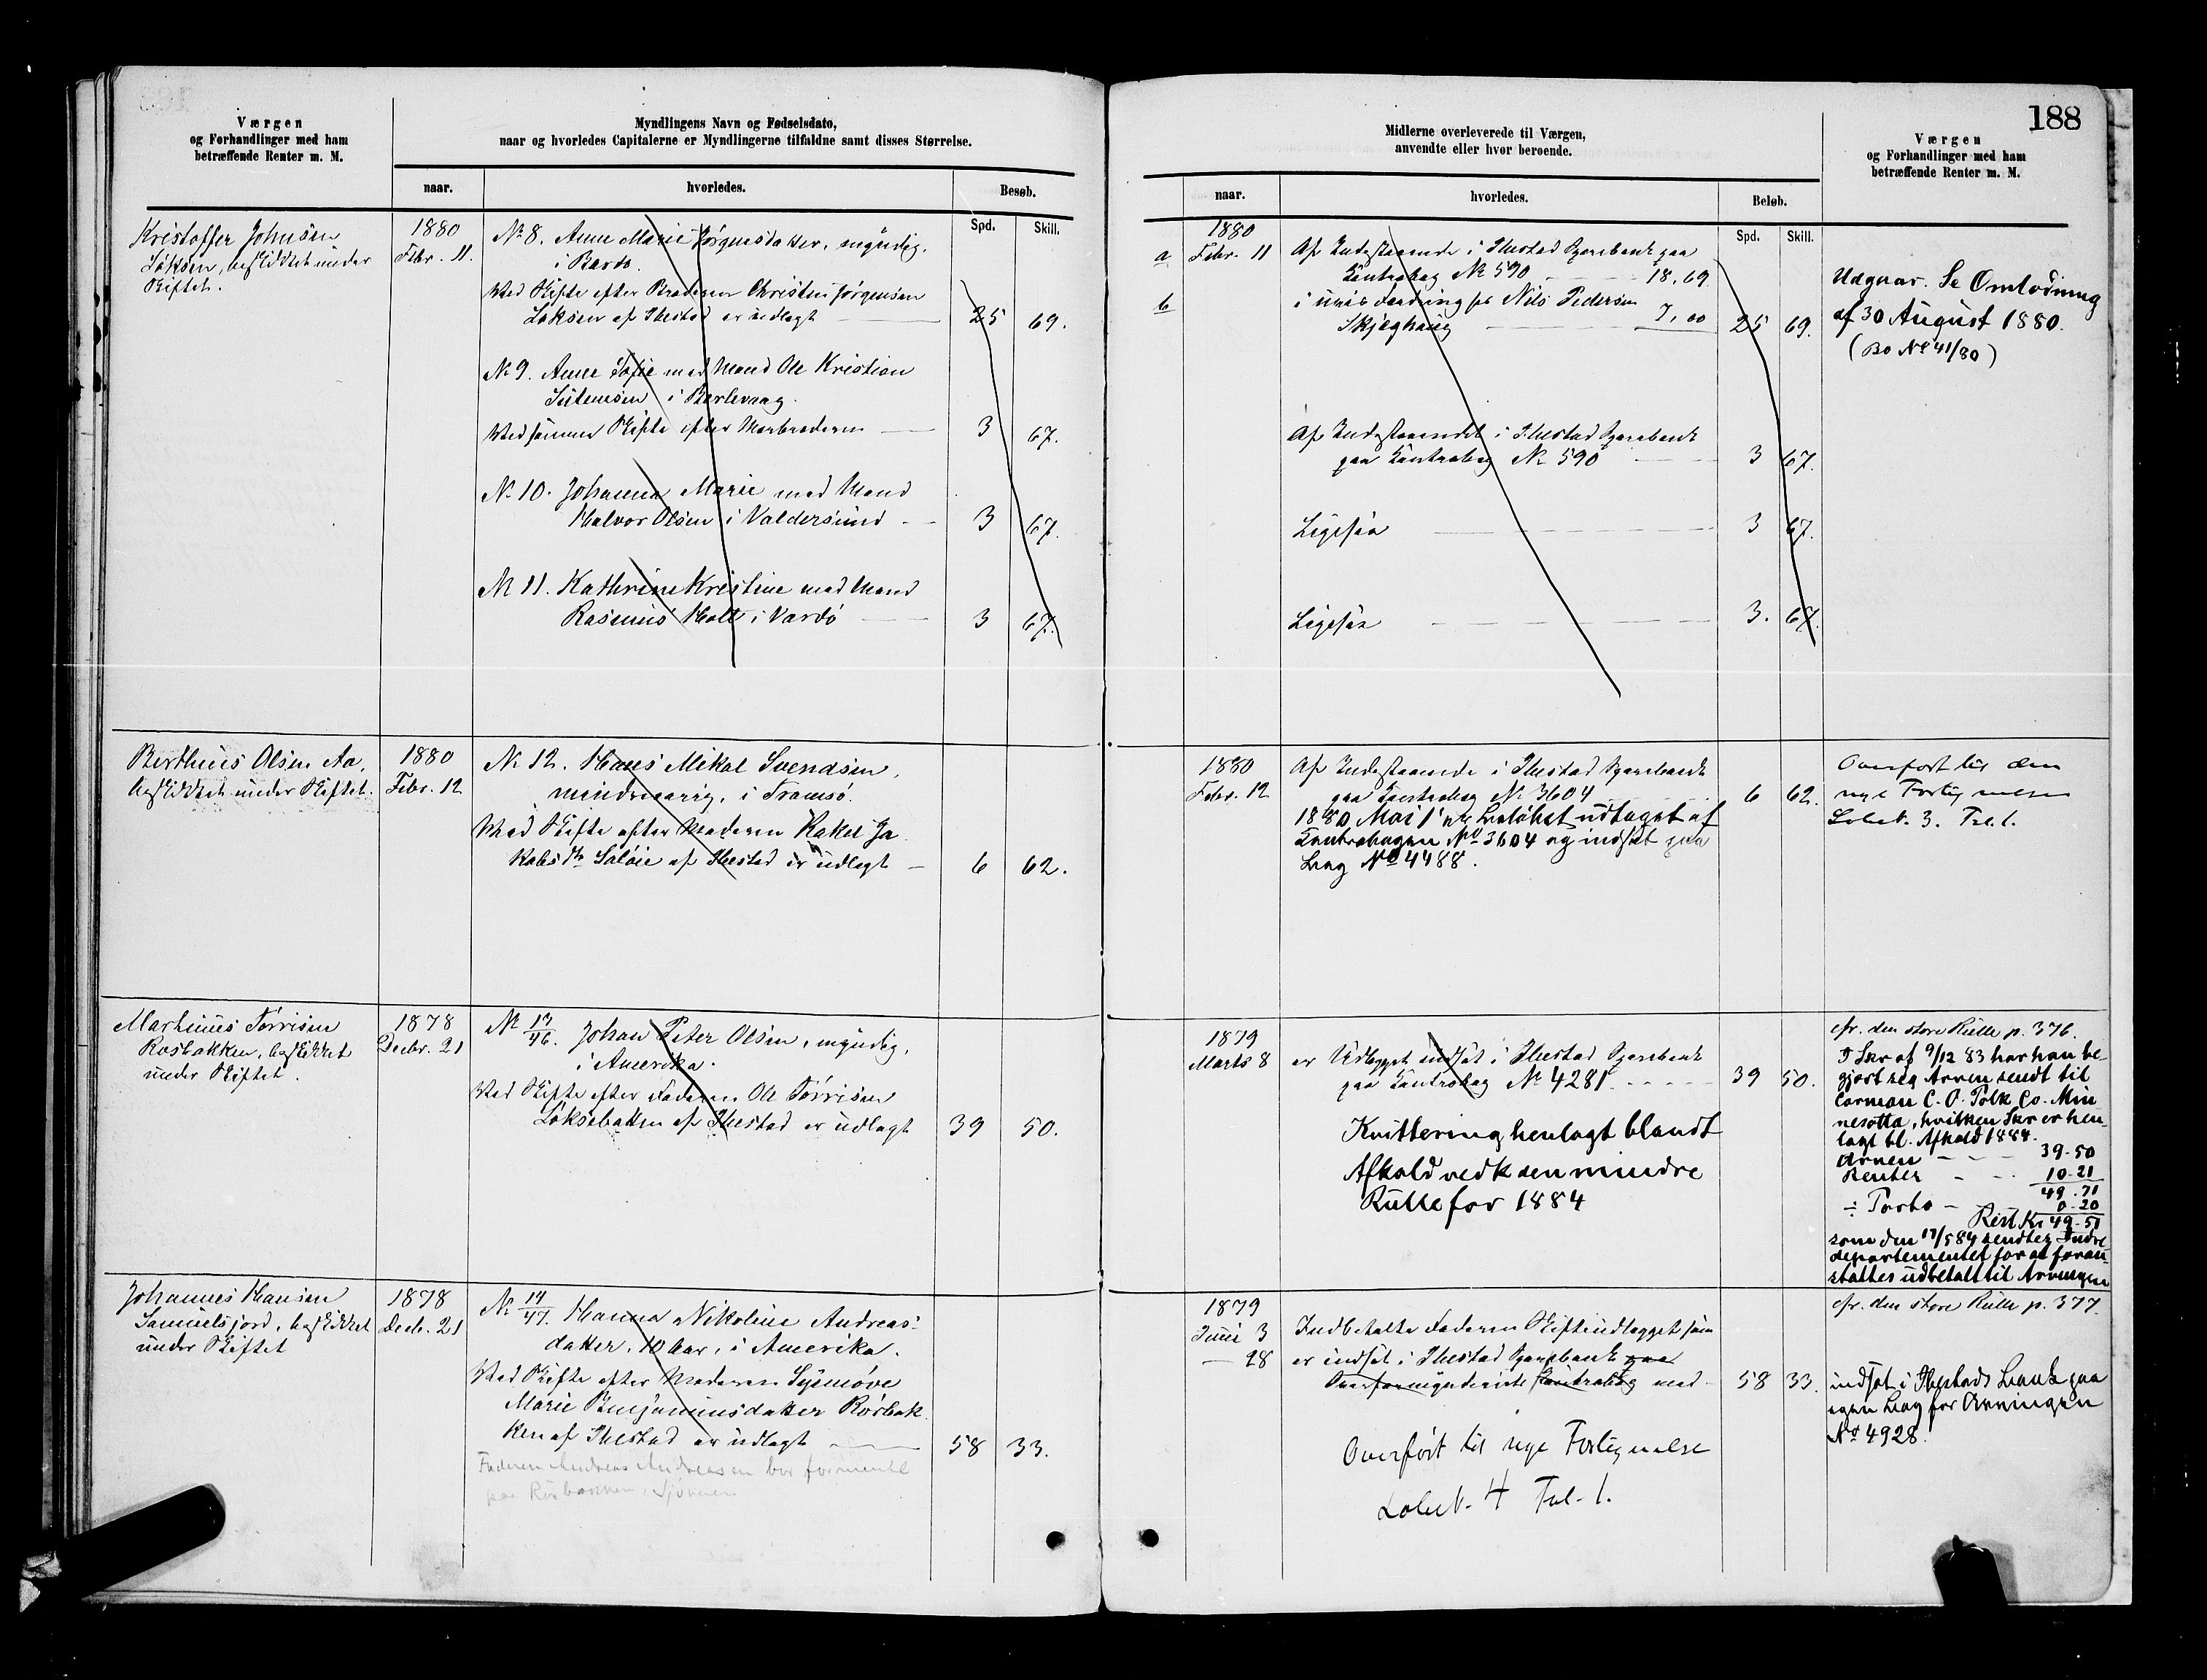 188
Værgen
og Forhandlinger med ham
betræffende Renter m. M.
Myndlingens Navn og Fødselsdato,
naar og hvorledes Capitalerne er Myndlingerne tilfaldne samt disses Størrelse.
naar.
hvorledes.
Besøb.
Spd.
Skill.
Kristoffer Johnsen
Løksen, beskikket under
Skiftet.
1880
Febr. 11.
No 8. Anne Marie Jørgensdatter, myndig,
i Bardo.
Ved Skifte efter Broderen Christen Jørgensen
Løksen af Ibestad er udlagt
25 69.
No 9. Anne Sofie med Mand Ole Kristian
i Berlevaag.
Ved samme Skifte efter Morbroderen
3 67.
No 10. Johanna Marie med Mand
Halvor Olsen i Valdersund
3 67.
No 11. Kathrine Kristine med Mand
Rasmus Holt i Vardø
3 67.
Bertheus Olsen Aa,
beskikket under Skiftet.
1880
Febr. 12
No 12. Hans Mikal Svendsen,
mindreaarig, i Tromsø.
Ved Skifte efter Moderen Rakel Ja-
kobsdtr Saløie af Ibestad er udlagt
6 62.
Marhinus Tørrisen
Rosbakken, beskikket
under Skiftet.
1878
Decbr. 21
No 13/46. Johan Peter Olsen, myndig,
i Amerika.
Ved Skifte efter Faderen Ole Tørrisen
Løksebakken af Ibestad er udlagt
39 50.
Johannes Hansen
Samuelsjord, beskikket
under Skiftet
1878
Decb. 21
No 14/47. Hanna Nikoline Andreas-
datter, 10 Aar, i Amerika.
Ved Skifte efter Moderen Synnøve
Marie Benjaminsdatter Rosbak-
ken af Ibestad er udlagt
58 33.
Faderen Andreas Andreasen bor formentl
paa Rosbakken,
Midlerne overleverede til Værgen,
anvendte eller hvor beroende.
Værgen
og Forhandlinger med ham
betræffende Renter m. M.
naar.
hvorledes.
Beløb.
Spd.
Skill.
1880
a Febr. 11
Af Indestaaende i Ibestad Sparebank paa
Kontrabog No 590 18.69
b i uvis Fordring hos Nils Pedersen
Skjæghaug 7,00
25 69.
Udgaar. Se Omlodning
af 30 August 1880.
(Bo No 41/80)
Af Indestaaendet i Ibestad Sparebank
paa Kontrabog No 590
3 67.
Ligesaa
3 67.
Ligesaa
3. 67.
1880
Febr. 12
Af Indestaaende i Ibestad Sparebank
paa Kontrabog No 3604
6 62.
1880 Mai 1 er Beløbet udtaget af
Kontrabogen No 3604 og indsat paa
Bog No 4488.
Overført til den
nye Fortegnelse
Lobe N. 3. Fol. 1.
1879
Marts 8
er Udlægget indsat i Ibestad Sparebank
paa Kontrabog No 4281
39 50.
Kvittering henlagt blandt
Afkald vedk den mindre
Rulle for 1884
cfr. den store Rulle p. 376.
I Skr af 9/12 83 har han be-
gjært seg Arven sendt til
Carman C. O. Polk Co. Min-
nesotta, hvilken Skr er hen-
lagt bl. Afkald 1884.
Arven 39-50
Renter 10-21
49.71
÷ Porto 0-20
Rest Kr 49-51
som den 17/5 84 sendtes Indre
departementet for at foran-
staltes udbetalt til Arvingen
1879
Juni 3
— 28
Indbetalte Faderen Skifteudlægget som
er indsat i Ibestad Sparebank paa
Overformynderiets Kontrabog med
58 33.
Overført til nye Fortegnelse
Lobe N. 4 Fol. 1.
cfr. den store Rulle p. 377.
indsat i Ibestads Bank paa
egen Bog for Arvingen
No 4928.